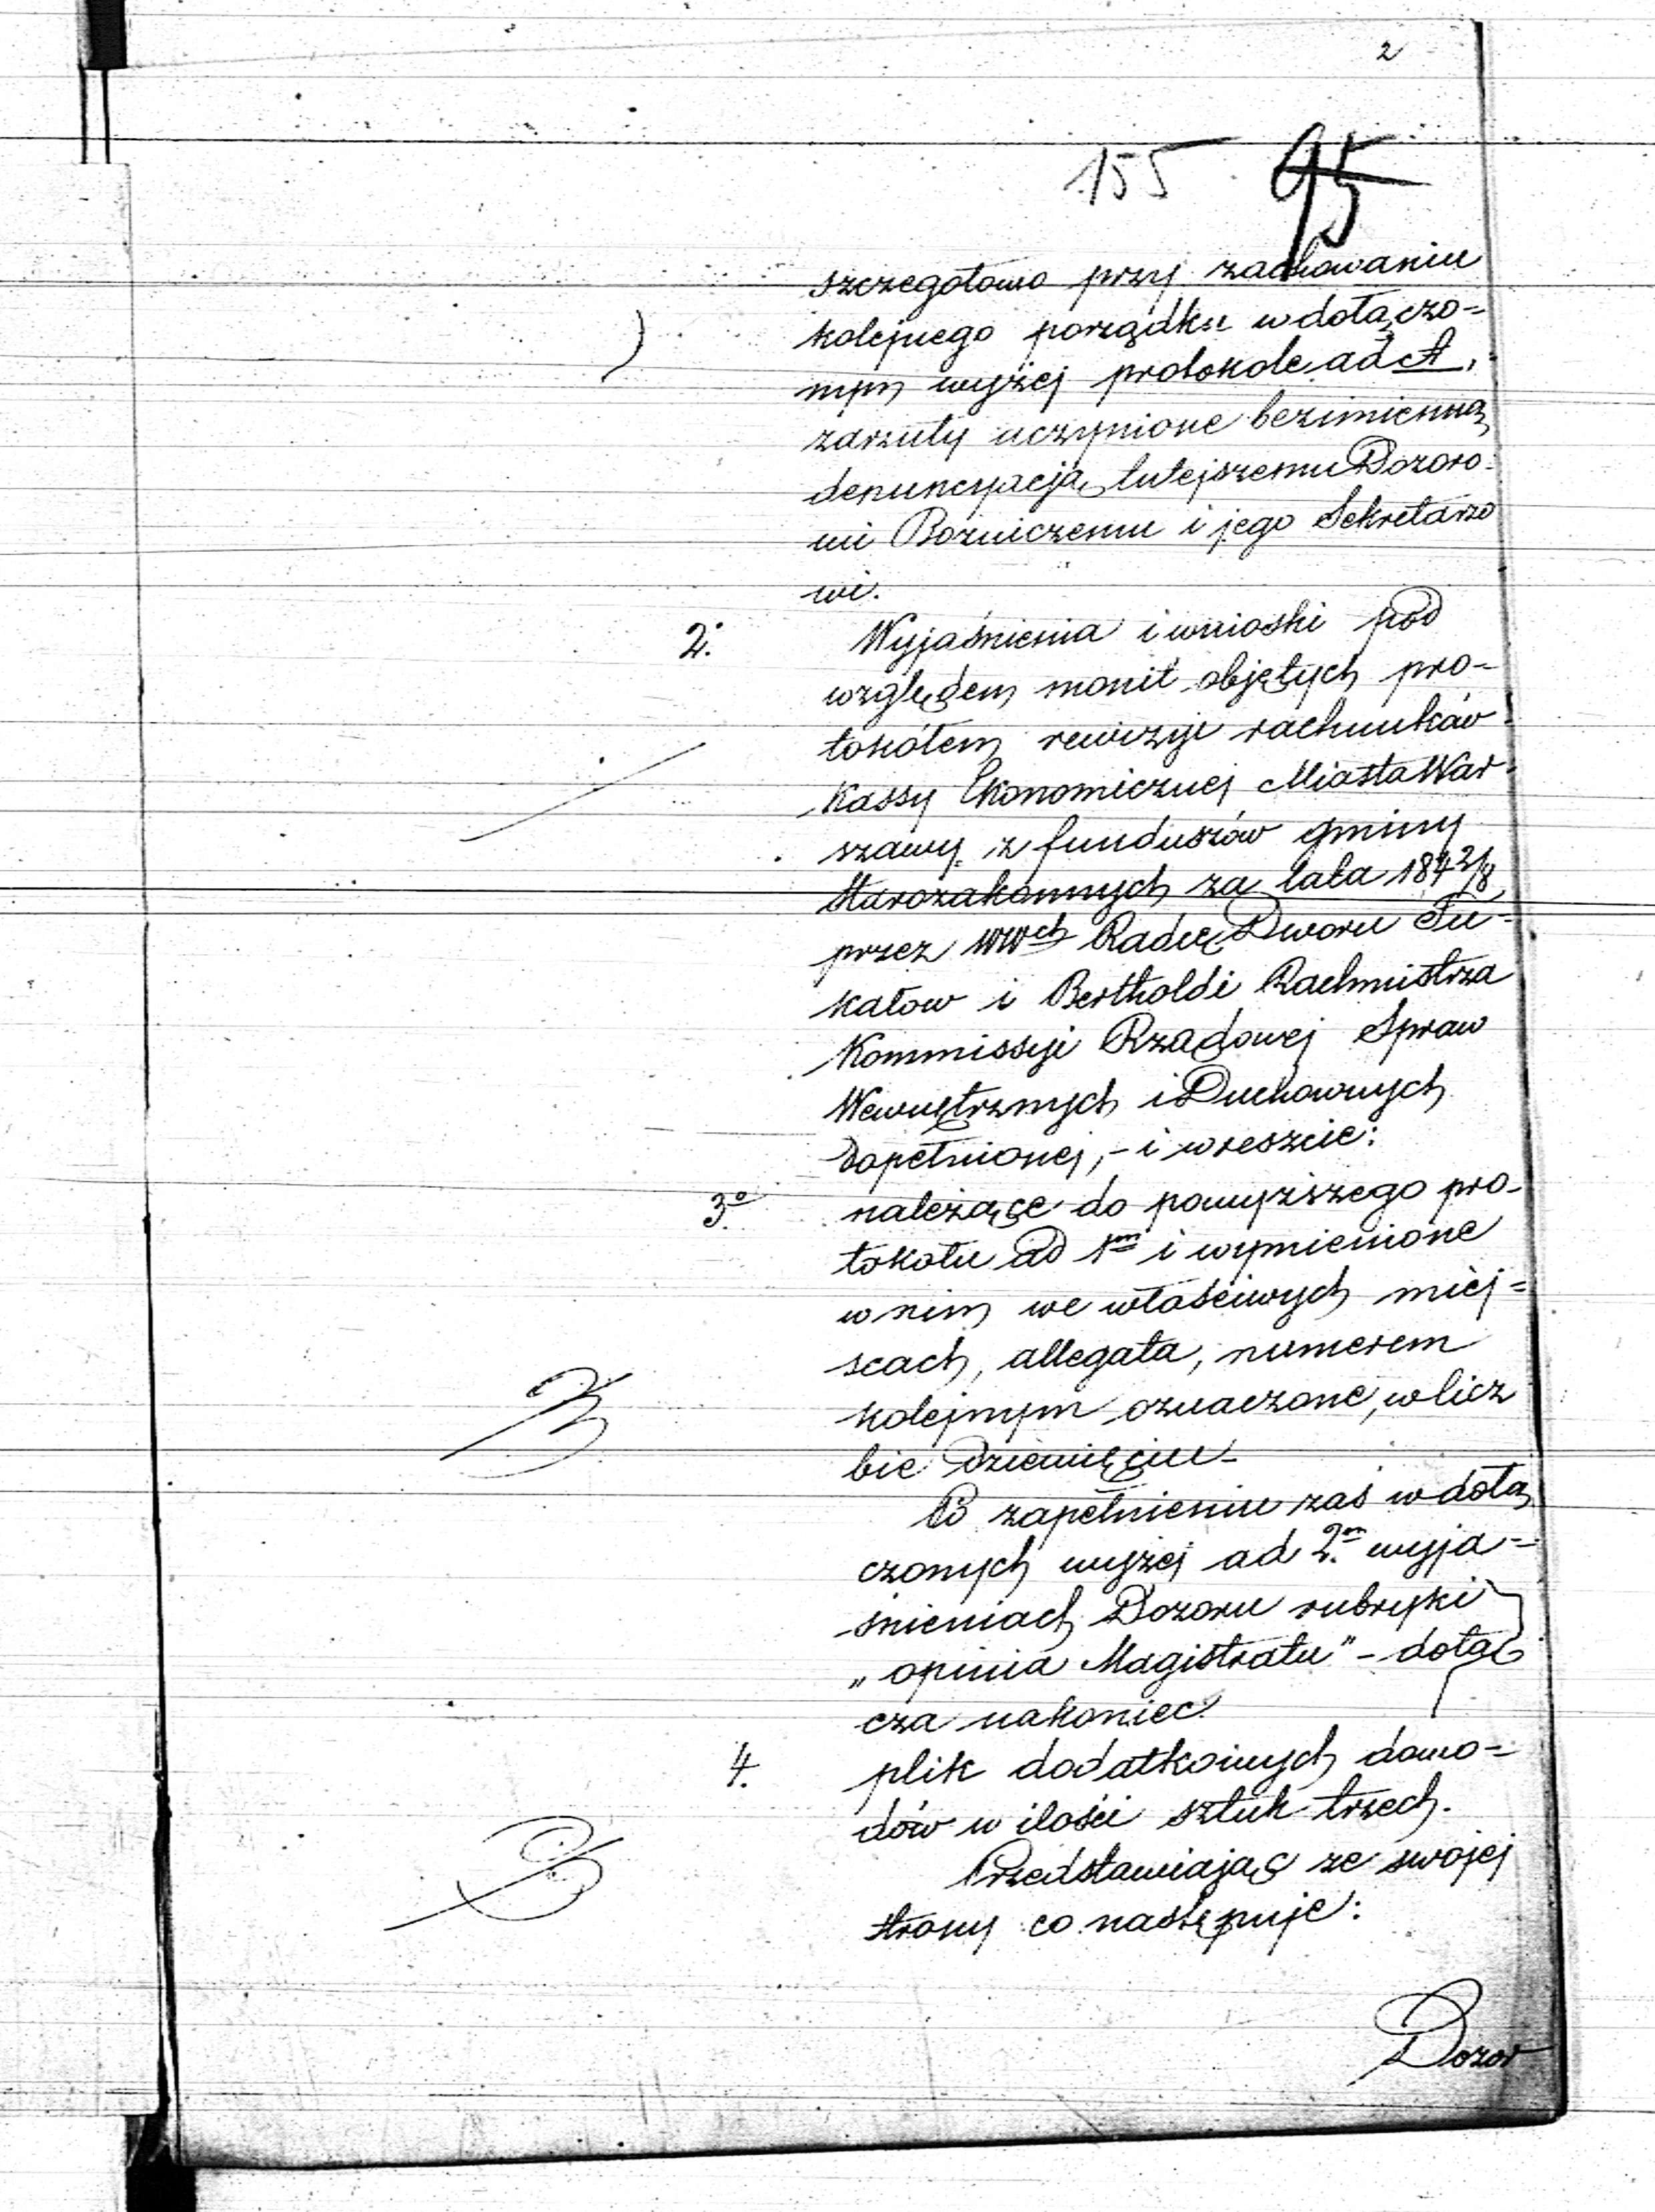 2
155 95
szczegołowo przy zachowaniu
kolejnego porządku w dołączo-
nym wyżej protokole ad A,
zarzuty uczynione bezimienną
denuncyacją, tutejszemu Dozoro-
wi Bożniczemu i jego Sekretarzo
wi.
2. Wyjaśnienia i wnioski pod
względem monit objętych pro-
tokółem rewizyi rachunków
Kassy Ekonomicznej Miasta War-
szawy z funduszów gminy
Starozakonnych za lata 184 2/8
przez WWch Radcę Dworu Fu-
katow i Bertholdi Rachmistrza
Kommissyi Rządowej Spraw
Wewnętrznych i Duchownych
dopełnionej, - i wreszcie:
3o należące do powyższego pro-
tokołu ad 1m i wymienione
w nim we właściwych miej-
scach, allegata, numerem
kolejnym oznaczone, w licz
bie dziewięciu -
Po zapełnieniu zaś w dołą
czonych wyżej ad 2m wyja-
śnieniach Dozoru rubryki
„opinia Magistratu" - dołą
cza nakoniec
4. plik dodatkowych dowo-
dów w ilości sztuk trzech.
Przedstawiając ze swojej
strony co następuje:
Dozor